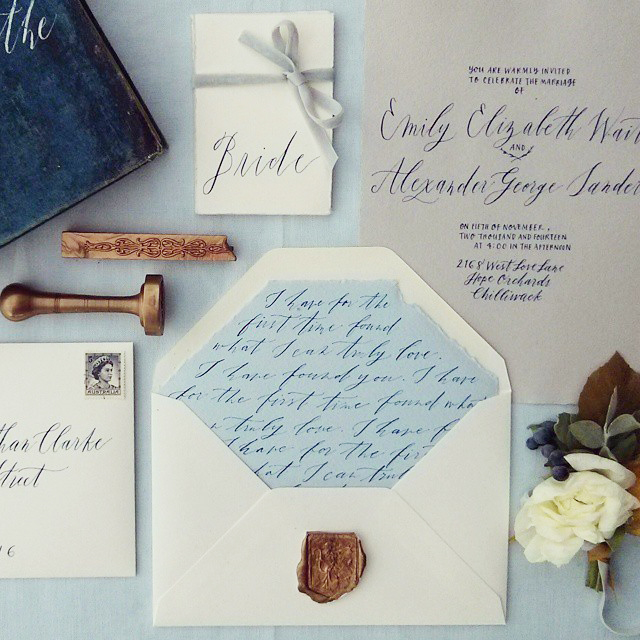 the
Bride
YOU ARE WARMLY INVITED
TO CELEBRATE THE MARRIAGE
OF
Emily Elizabeth Wait
AND
Alexander George Sander
ON FIFTH OF NOVEMBER,
TWO THOUSAND AND FOURTEEN
AT 4:00 IN THE AFTERNOON
2168 West Love Lane
Hope Orchards
Chilliwack
I have for the
first time found
what I can truly love.
I have found you. I have
for the first time found what
truly love. I have f
I have for the fir
what I can tru
AUSTRALIA
than Clarke
treet
6